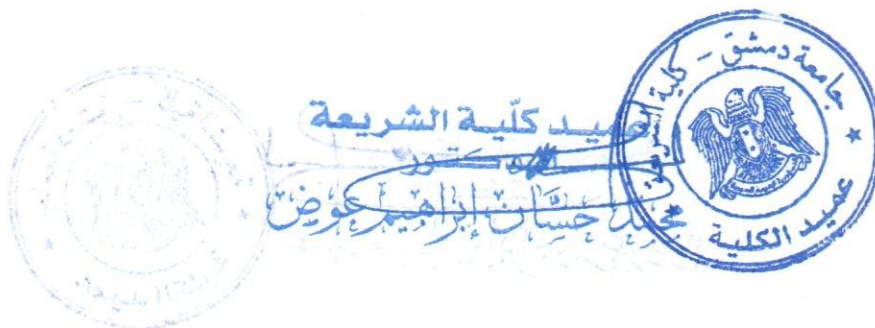 عميد كلّية الشريعة
الدكتور
محمد حسّان إبراهيم عوض
جامعة دمشق - كلية الشريعة
عميد الكلية